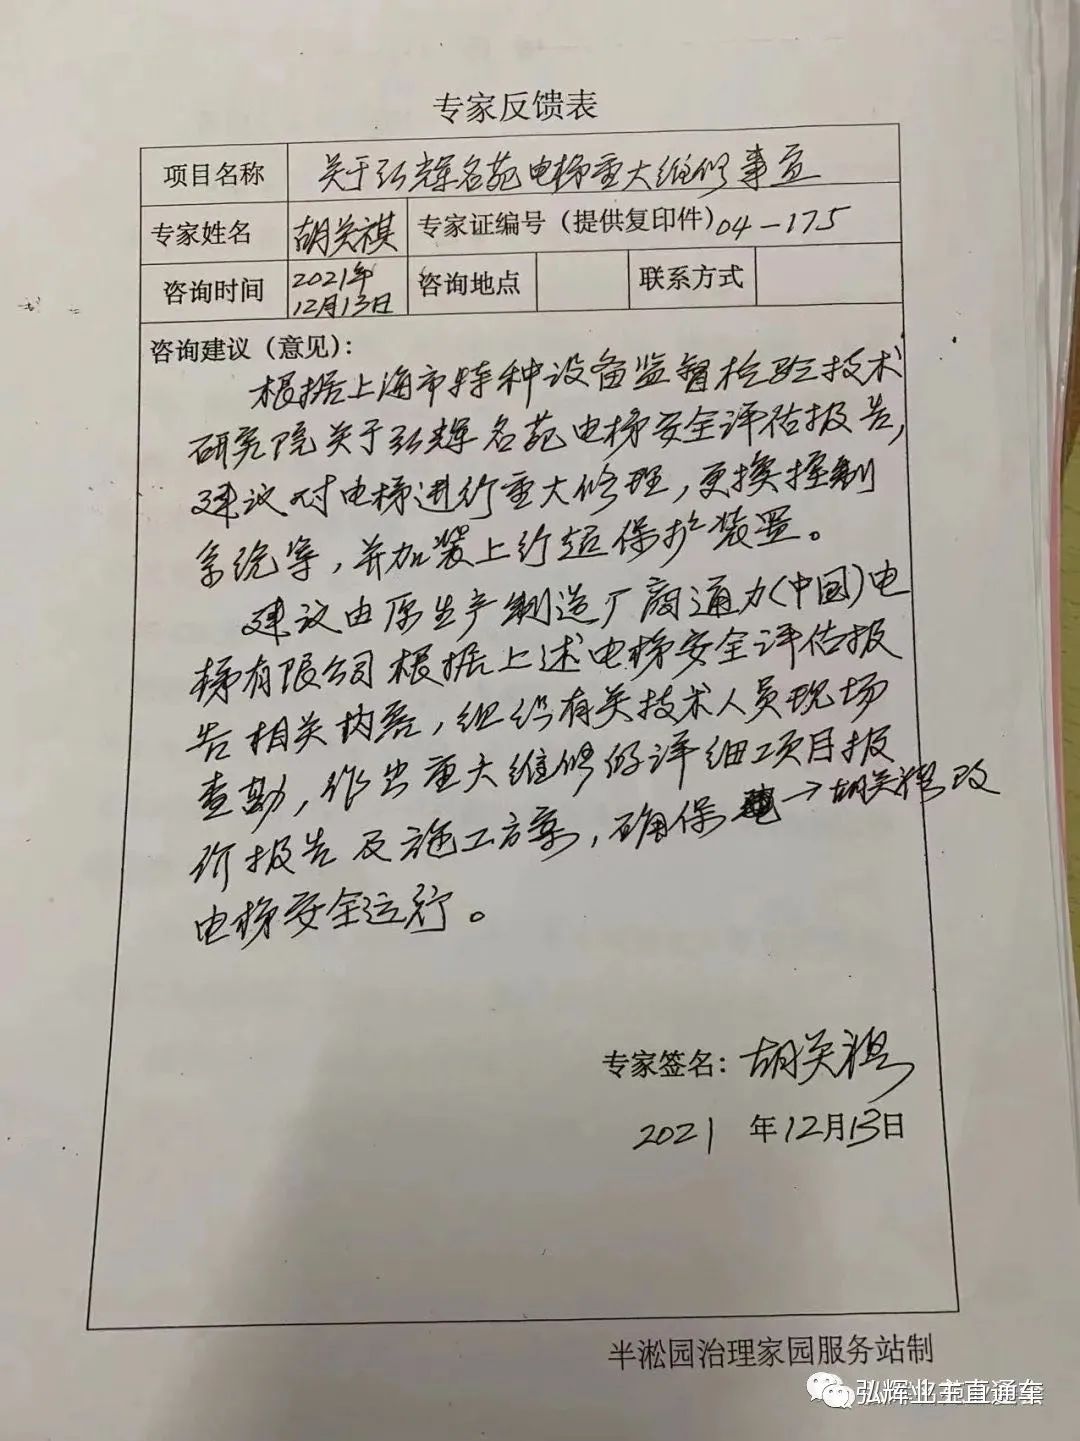 专家反馈表
项目名称 关于弘辉名苑电梯重大维修事宜
专家姓名 胡关祺 专家证编号（提供复印件）04-175
咨询时间 2021年12月13日 咨询地点 联系方式
咨询建议（意见）：
根据上海市特种设备监督检验技术
研究院关于弘辉名苑电梯安全评估报告，
建议对电梯进行重大修理，更换控制
系统等，并加装上行超保护装置。
建议由原生产制造厂商通力（中国）电
梯有限公司根据上述电梯安全评估报
告相关内容，组织有关技术人员现场
查勘，作出重大维修的详细工项目报
价报告及施工方案，确保 → 胡关祺改
电梯安全运行。
专家签名：胡关祺
2021 年12月13日
半淞园治理家园服务站制
弘辉业主直通车